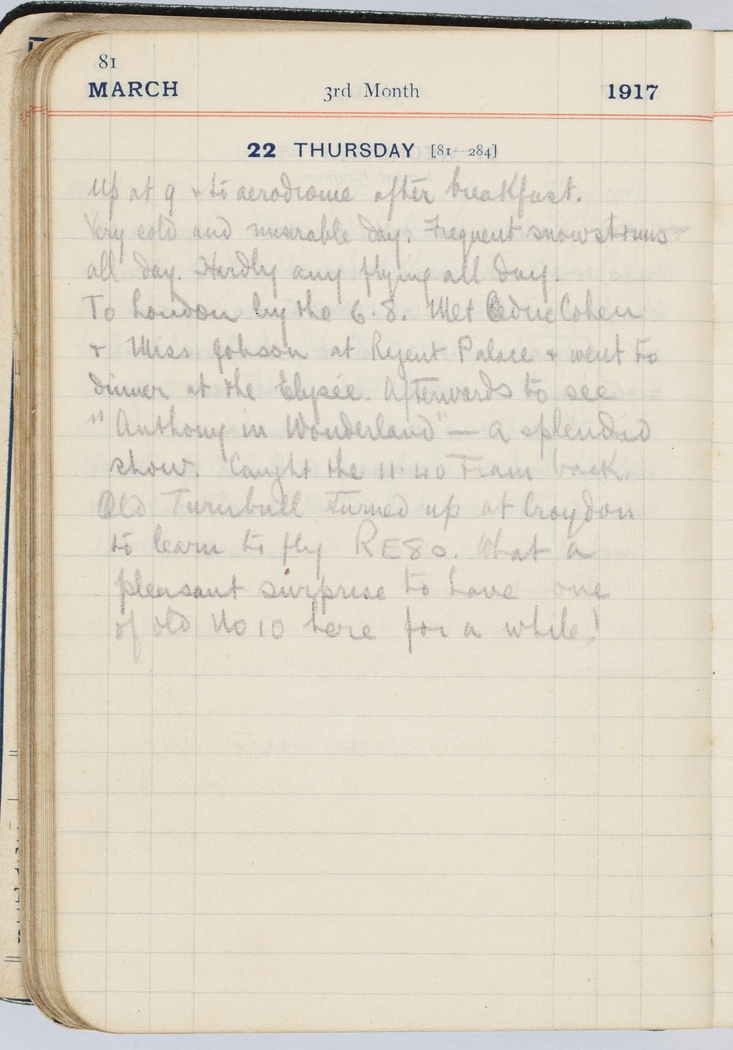 81
MARCH 3rd Month 1917
22 THURSDAY [81—284]
Up at 9 + to aerodrome after breakfast.
Very cold and miserable day. Frequent snowstorms
all day. Hardly any flying all day.
To London by the 6.8. Met Cedric Cohen
+ Miss Johson at Regent Palace + went to
dinner at the Elysée. Afterwards to see
"Anthony in Wonderland" — a splendid
show. Caught the 11.40 Train back.
Old Turnbull turned up at Croydon
to learn to fly RE8s. What a
pleasant surprise to have one
of old No 10 here for a while!